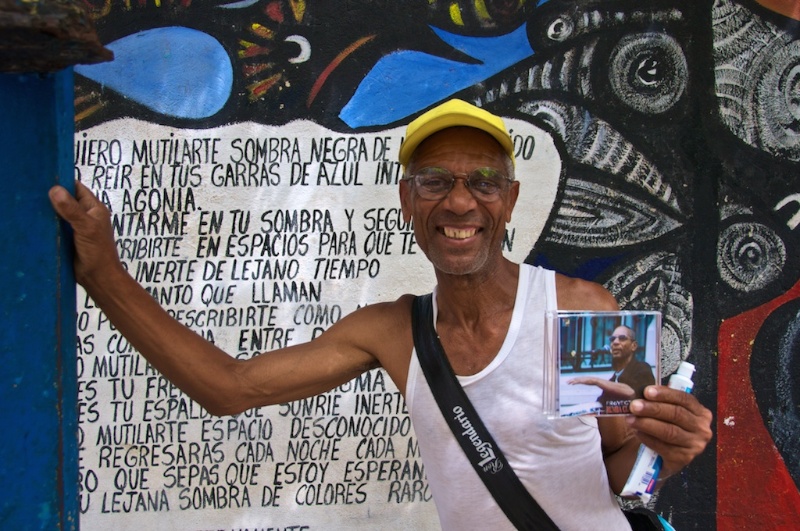 UIERO MUTILARTE SOMBRA NEGRA DE IDO
O REIR EN TUS GARRAS DE AZUL IN
A AGONIA.
NTARME EN TU SOMBRA Y SEGUI
CRIBIRTE EN ESPACIOS PARA QUE TE N
INERTE DE LEJANO TIEMPO
MANTO QUE LLAMAN
ESCRIBIRTE COMO
AS ENTRE
MUTILA
ES TU FR
ES TU ESPAL QUE SONRIE INERTE
MUTILARTE ESPACIO DESCONOCIDO
REGRESARAS CADA NOCHE CADA M
RO QUE SEPAS QUE ESTOY ESPERAN
U LEJANA SOMBRA DE COLORES RARO
Ron Legendario